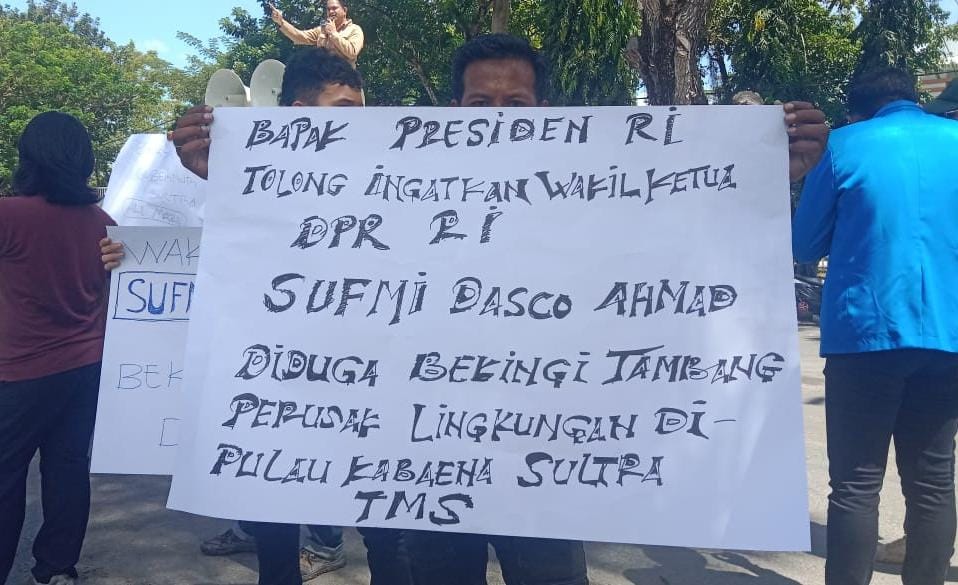 BAPAK PRESIDEN RI
TOLONG INGATKAN WAKIL KETUA
DPR RI
SUFMI DASCO AHMAD
DIDUGA BEKINGI TAMBANG
PERUSAK LINGKUNGAN DI-
PULAU KABAENA SULTRA
TMS
WAK
SUF
BEK
D